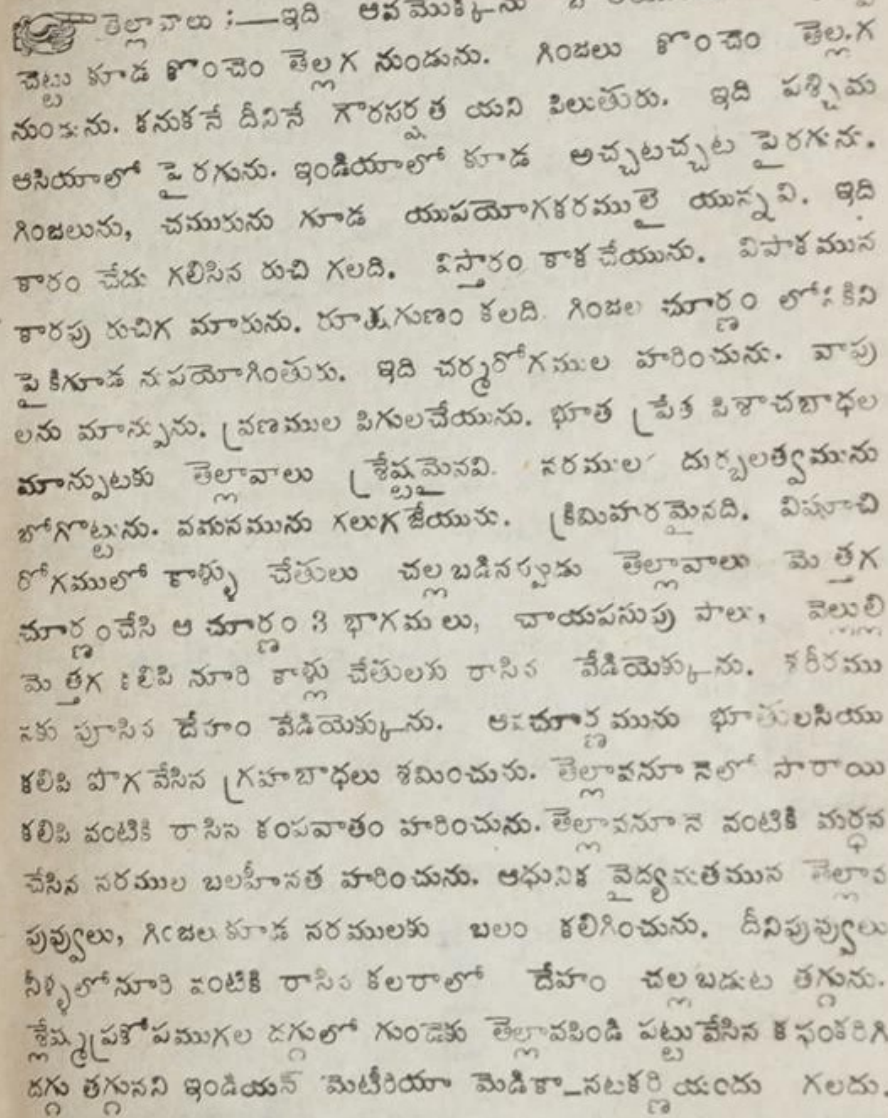 తెల్లావాలు :—ఇది ఆవమొక్కను
చెట్టు కూడ కొంచెం తెల్లగ నుండును. గింజలు కొంచెం తెల్లగ
నుండును. కనుకనే దీనినే గౌరసర్షప యని పిలుతురు. ఇది పశ్చిమ
ఆసియాలో పైరగును. ఇండియాలో కూడ అచ్చటచ్చట పైరగును.
గింజలును, చమురును గూడ యుపయోగకరములై యున్నవి. ఇది
కారం చేదు గలిసిన రుచి గలది. విస్తారం కాకచేయును. విపాకమున
కారపు రుచిగ మారును. రూక్షగుణం కలది. గింజల చూర్ణం లోనికిని
పైకిగూడ నుపయోగింతురు. ఇది చర్మరోగముల హరించును. వాపు
లను మాన్పును. వ్రణముల పిగులచేయును. భూత ప్రేత పిశాచబాధల
మాన్పుటకు తెల్లావాలు శ్రేష్టమైనవి. నరముల దుర్బలత్వమును
బోగొట్టును. వమనమును గలుగజేయును. క్రిమిహరమైనది. విషూచి
రోగములో కాళ్ళు చేతులు చల్లబడినప్పుడు తెల్లావాలు మెత్తగ
చూర్ణంచేసి ఆ చూర్ణం 3 భాగములు, చాయపసుపు పాలు, వెలుల్లి
మెత్తగ కలిపి నూరి కాళ్లు చేతులకు రాసిన వేడియెక్కును. శరీరము
నకు పూసిన దేహం వేడియెక్కును. ఆవచూర్ణమును భూతులసియు
కలిపి పొగవేసిన గ్రహబాధలు శమించును. తెల్లావనూనెలో సారాయి
కలిపి వంటికి రాసిన కంపవాతం హరించును. తెల్లావనూనె వంటికి మర్ధన
చేసిన నరముల బలహీనత హరించును. ఆధునిక వైద్యమతమున తెల్లావ
పువ్వులు, గింజలకూడ నరములకు బలం కలిగించును. దీనిపువ్వులు
నీళ్ళలోనూరి వంటికి రాసిన కలరాలో దేహం చల్లబడుట తగ్గును.
శ్లేష్మప్రకోపముగల దగ్గులో గుండెకు తెల్లావపిండి పట్టువేసిన కఫంకరిగి
దగ్గు తగ్గునని ఇండియన్ మెటీరియా మెడికా_నటకర్ణి యందు గలదు.